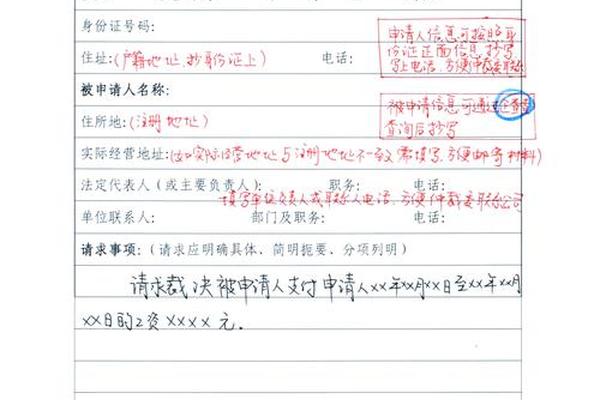 身份证号码:
申请人信息可按照身
份证正面信息,抄写
写上电话,方便仲裁委联系
住址:(户籍地址,抄身份证上) 电话:
被申请人名称:
被申请信息可通过企查查
查询后抄写
住所地:(注册地址)
实际经营地址:(如实际经营地址与注册地址不一致需填写,方便邮寄材料)
法定代表人(或主要负责人): 职务: 电话:
填写单位负责人或联系人电话,方便仲裁委联系公司
单位联系人: 部门及职务: 电话:
请求事项:(请求应明确具体、简明扼要、分项列明)
请求裁决被申请人支付申请人xx年xx月xx日至xx年xx月
xx日的工资xxxx元.